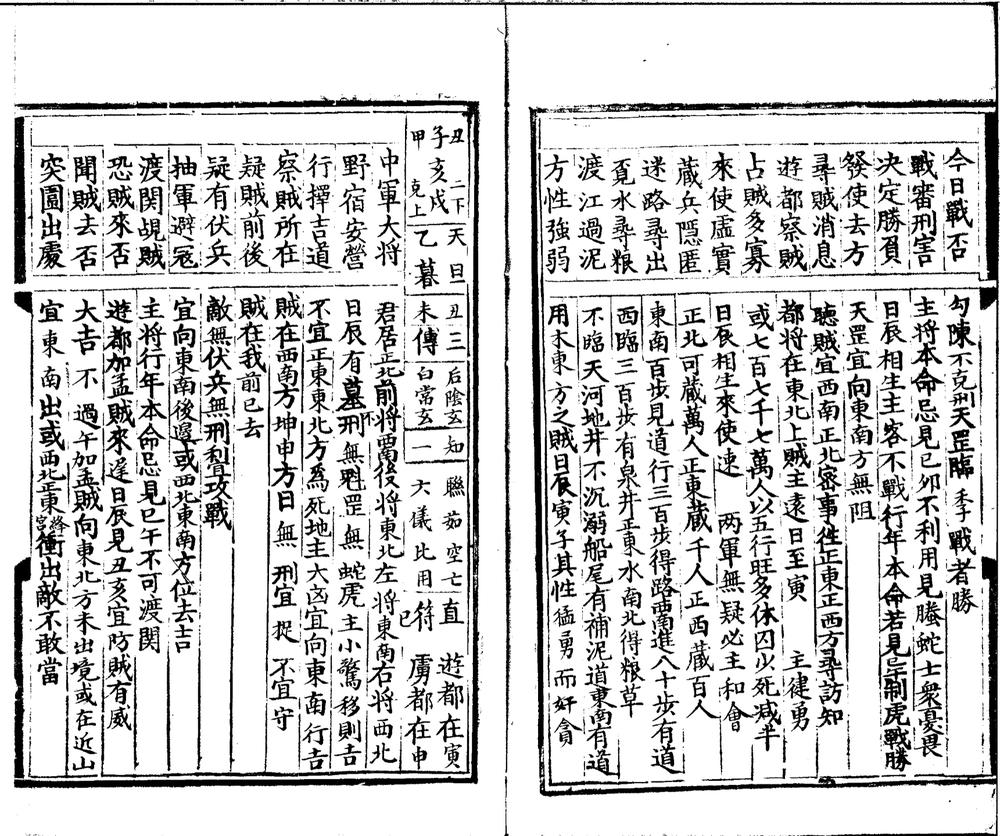 今日戰否　勾陳不克刑天罡臨季戰者勝
戰審刑害　主將本命忌見巳卯不利用見螣蛇士衆憂畏
决定勝負　日辰相生主客不戰行年本命若見制虎戰勝
發使去方　天罡宜向東南方無阻
尋賊消息　聽賊宜西南正北密事徃正東正西方尋訪知
遊都察賊　都將在東北上賊主遠日至寅　主徤勇
占賊多寡　或七百七千七萬人以五行旺多休囚少死减半
來使虚實　日辰相生來使速　两軍無疑必主和會
蔵兵隱匿　正北可蔵萬人正東蔵千人正西蔵百人
迷路尋出　東南百步見道行三百步得路西南進八十步有道
覔水尋粮　西臨三百步有泉井正東水南北得粮草
渡江過泥　不臨天河地井不沉溺船尾有補泥道東南有道
方性強弱　用木東方之賊日辰寅子其性猛勇而好貪
丑二下天旦丑三后陰玄知聮茹空亡直　遊都在寅
子亥戌
甲　克上乙暮未傳白常玄一　六儀比用符已虜都在申
中軍大将　君居正北前将西南後将東北左将東南右将西北
野宿安營　日辰有墓不刑無魁罡無蛇虎主小驚移則吉
行擇吉道　不宜正東東北方為死地主大凶宜向東南行吉
察賊所在　賊在西南方坤申方日無　刑宜捉　不宜守
疑賊前後　賊在我前已去
疑有伏兵　敵無伏兵無刑攻戰
抽軍避寇　宜向東南後邊或西北東南方位去吉
渡関覘賊　主將行年本命忌見巳午不可渡関
恐賊來否　遊都加孟賊來遲日辰見丑亥宜防賊有威
聞賊去否　大吉　不　過午加孟賊向東北方未出境或在近山
突圍出處　宜東南出或西北正東絳宮衝出敵不敢當